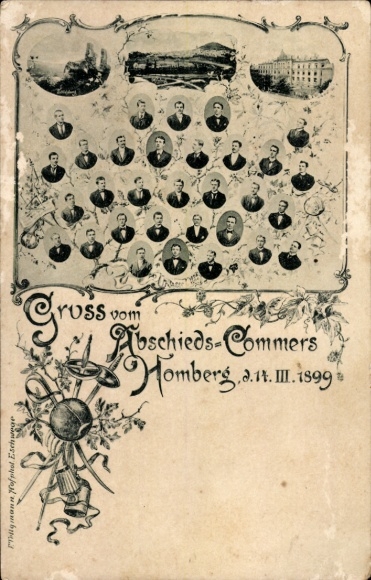 Gruss vom
Abschieds=Commers
Homberg, d. 14. III. 1899
Hofphot. Eschwege